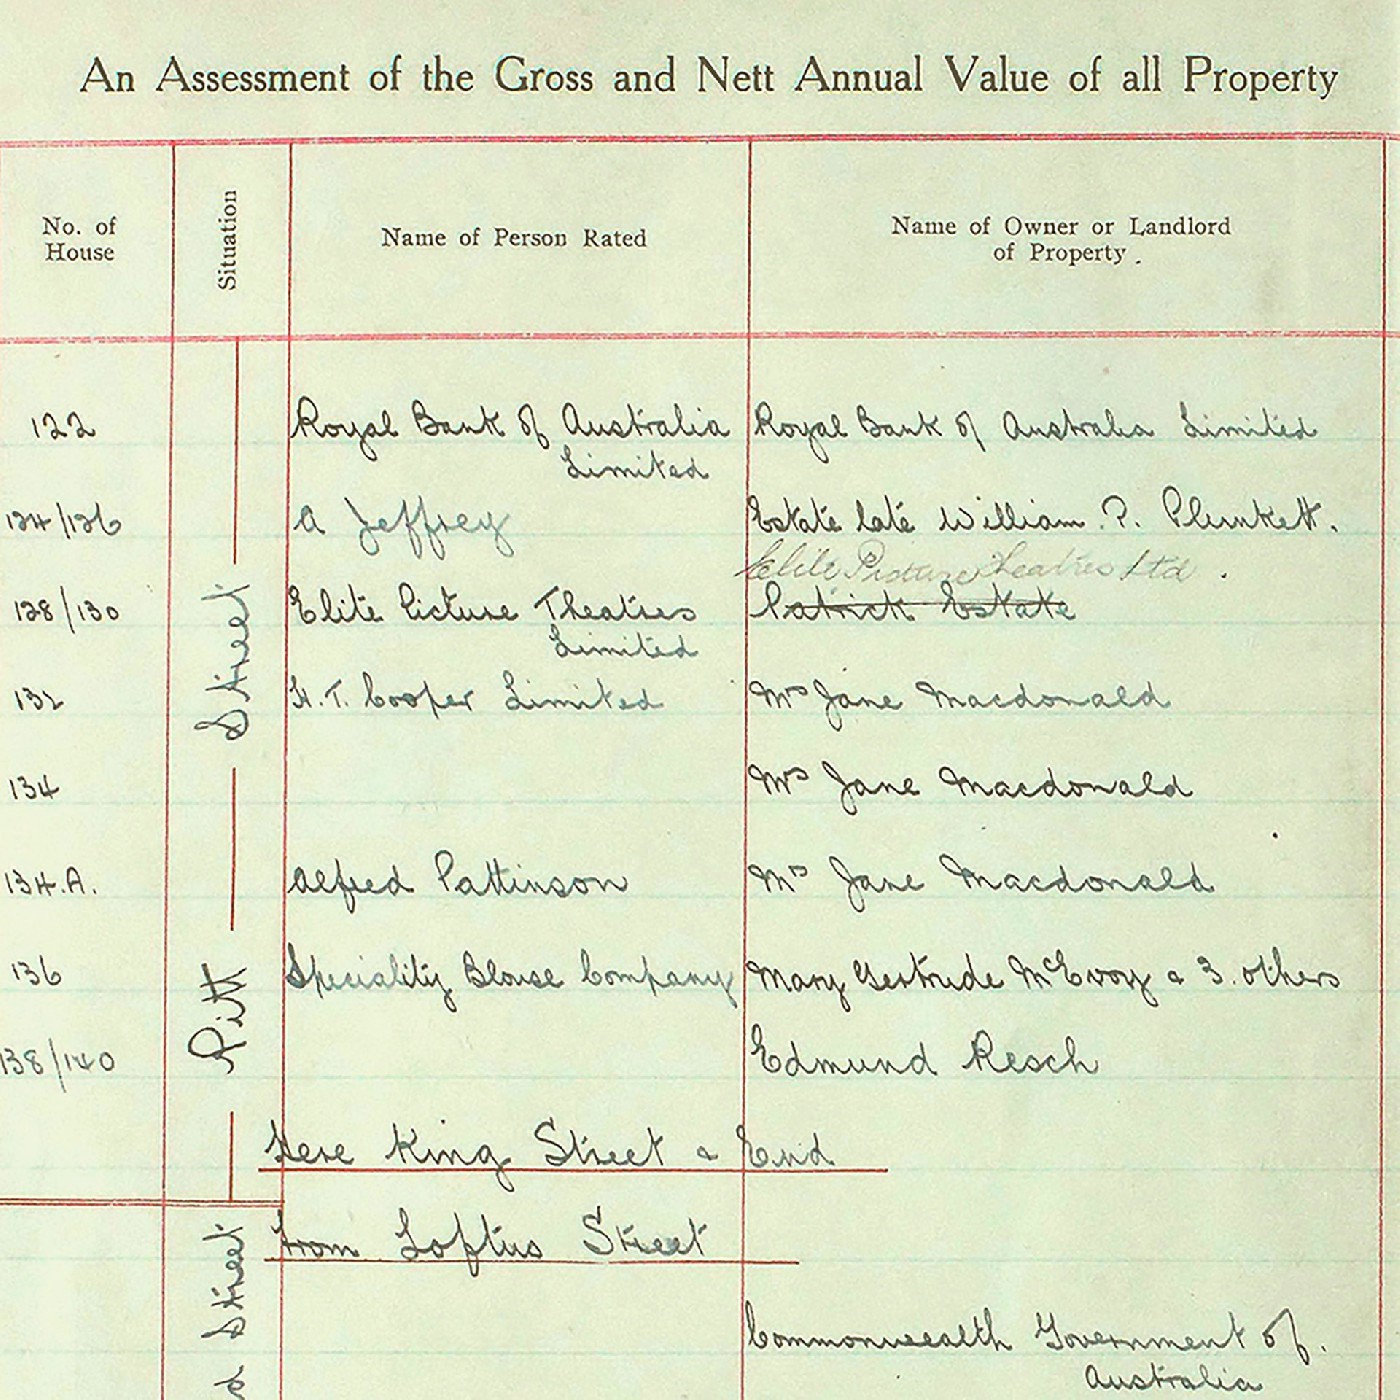 An Assessment of the Gross and Nett Annual Value of all Property
No. of House Situation Name of Person Rated Name of Owner or Landlord of Property.
122 Royal Bank of Australia Royal Bank of Australia Limited
Limited
124/126 A Jeffrey Estate late William. P. Plunkett.
Elite Picture Theatres Ltd.
128/130 Elite Picture Theatres Patrick Estate
Limited
132 H. T. Cooper Limited Mrs Jane Macdonald
134 Mrs Jane Macdonald
134.A. Alfred Pattinson Mrs Jane Macdonald
136 Speciality Blouse Company Mary Gertrude McEvoy & 3. others
138/140 Edmund Resch
Pitt Street
Here King Street & End
from Loftus Street
Street
Commonwealth Government of.
Australia